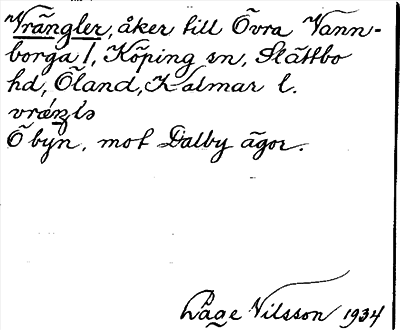 Vrängler, åker till Övra Vann-
borga 1, Köping sn, Slättbo
hd, Öland, Kalmar l.
Ö byn, mot Dalby ägor.
Åge Nilsson 1934